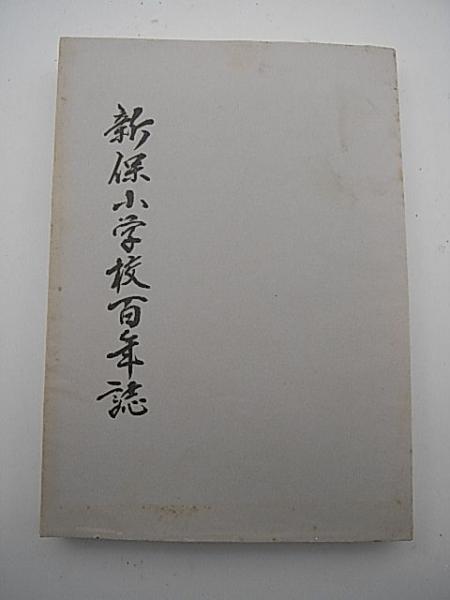 新保小学校百年誌